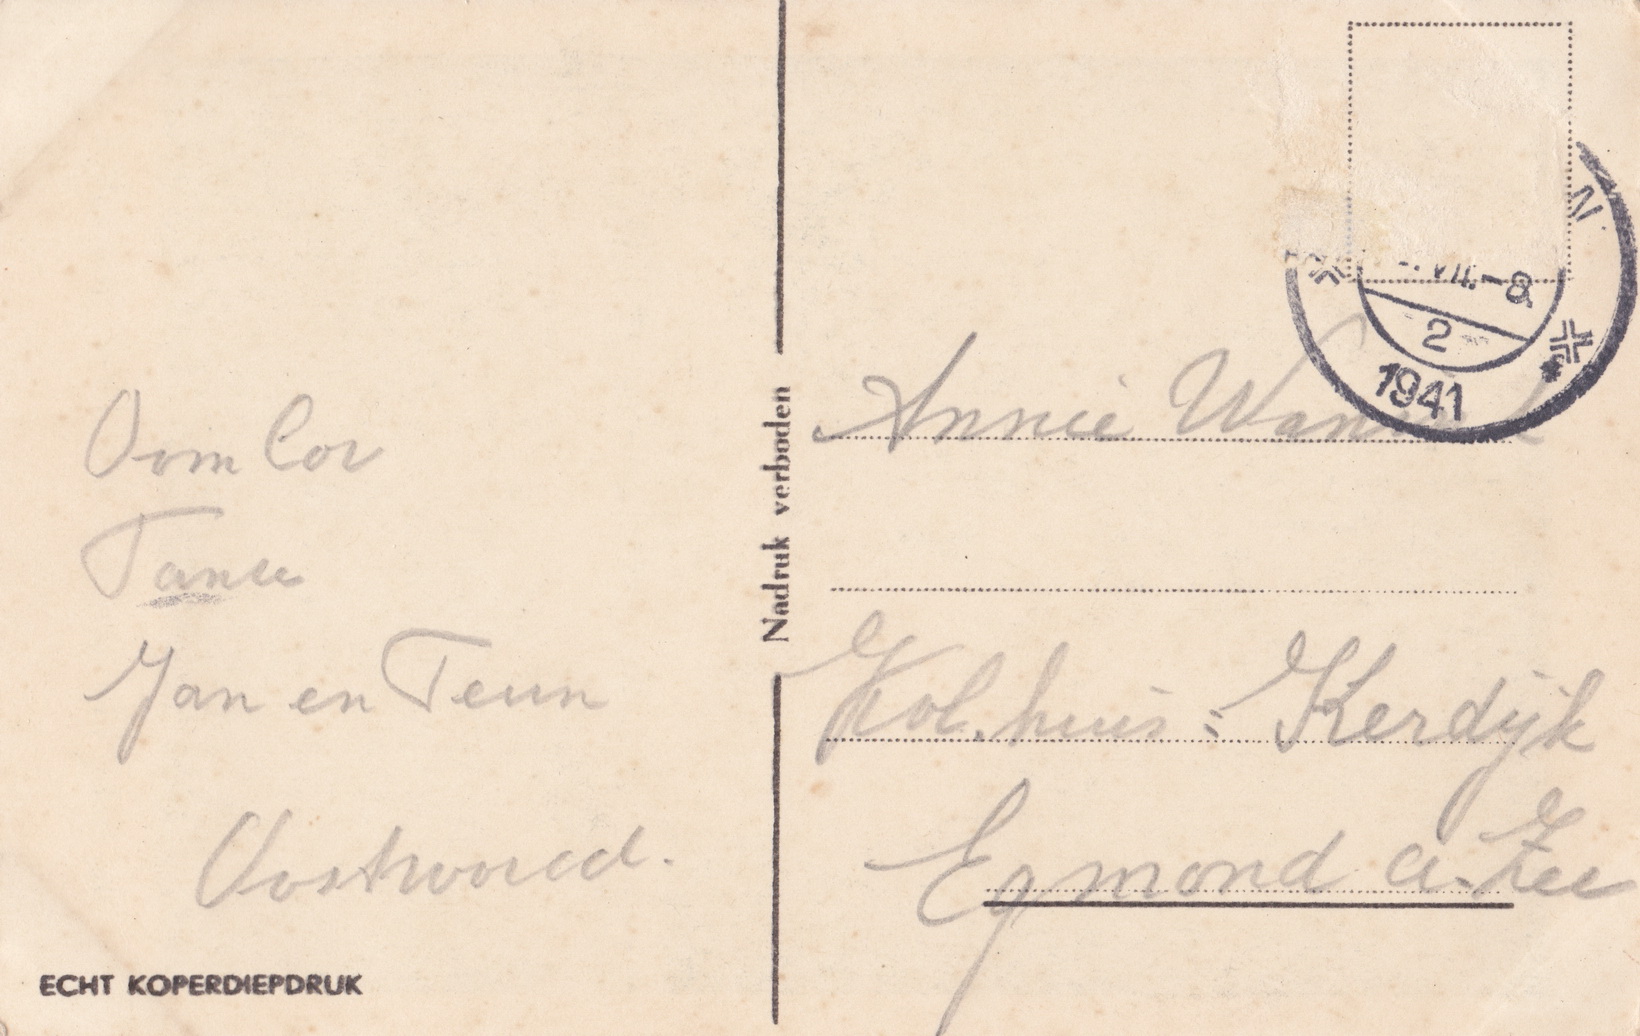 Oom Cor
Tante
Jan en Teun
Oostwoud.
ECHT KOPERDIEPDRUK
Nadruk verboden
N
VII.-8.
2
1941
Annie
Kol. huis: Kerdijk
Egmond a. Zee